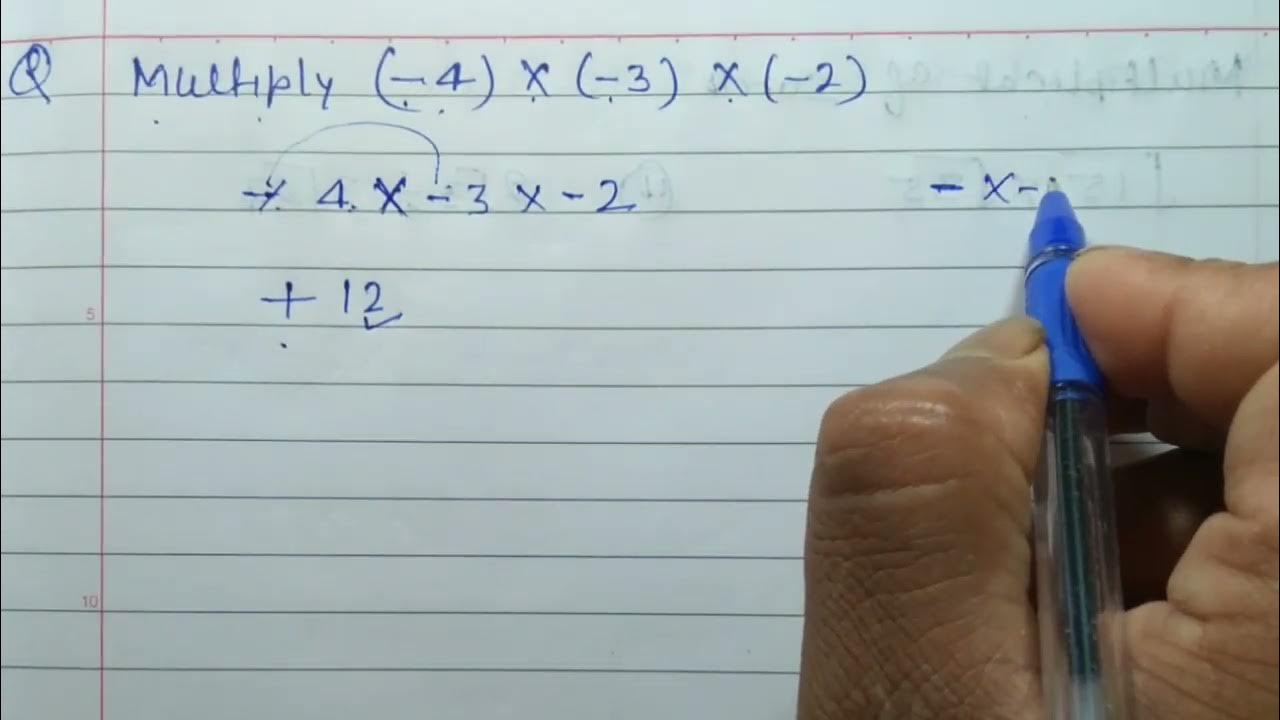 Q Multiply (-4) × (-3) × (-2)
- 4 × -3 × -2
- × -
+ 12
5
10